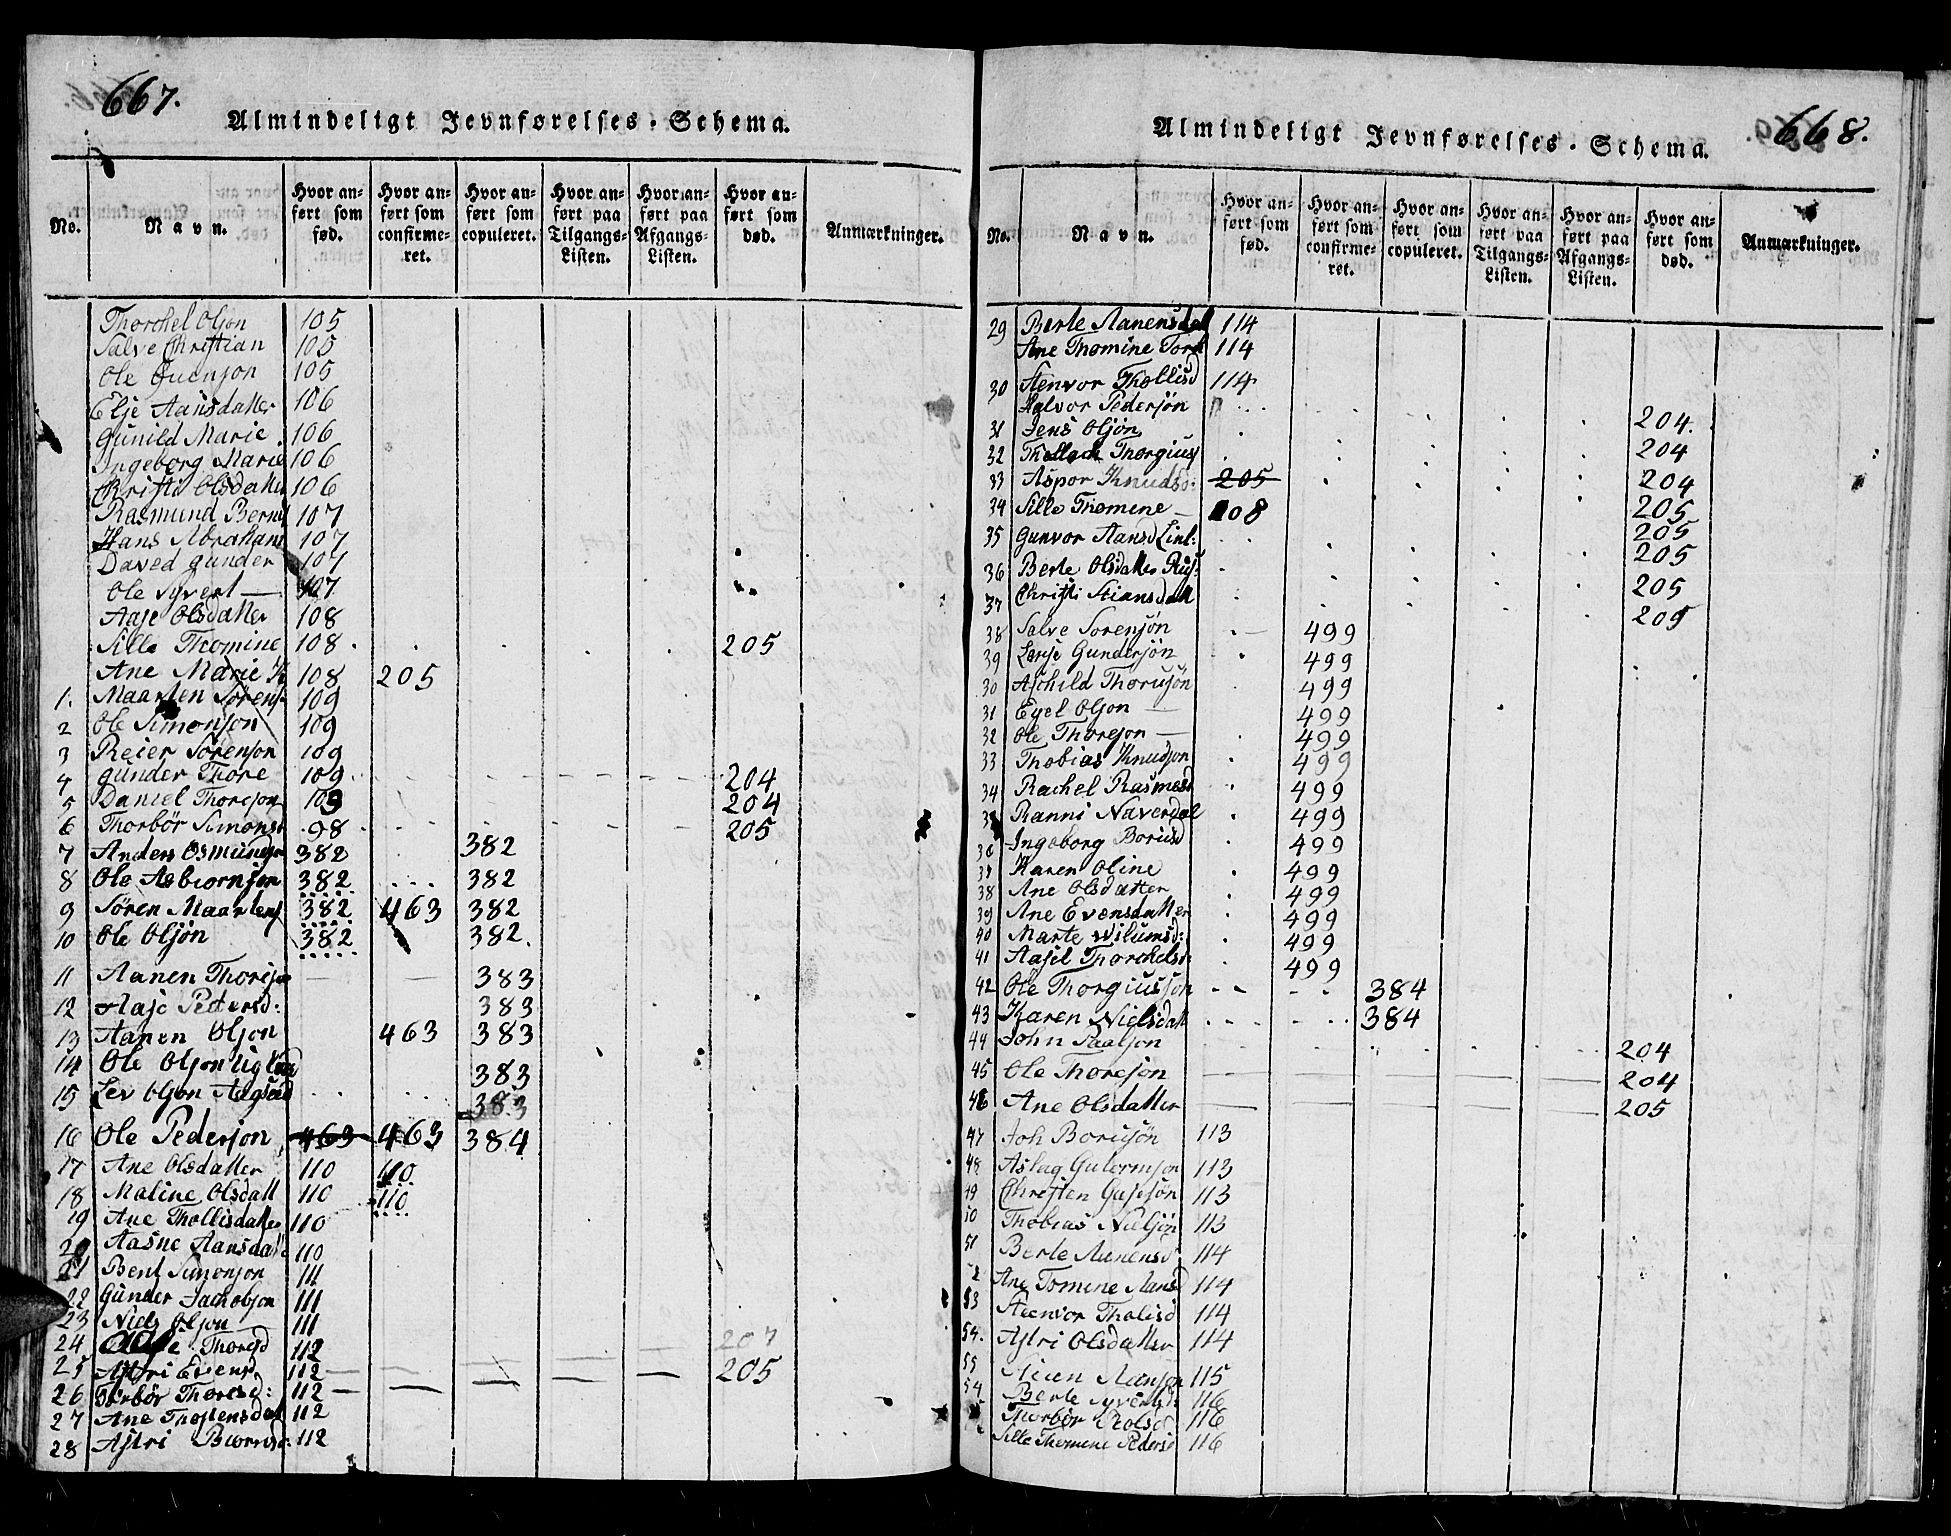 667.
Almindeligt Jevnførelses-Schema.
No. Navn. Hvor anført som fød. Hvor anført som confirmeret. Hvor anført som copuleret. Hvor anført paa Tilgangs-Listen. Hvor anført paa Afgangs-Listen. Hvor anført som død. Anmærkninger.
Thorchel Olson 105
Salve Christian 105
Ole Evensøn 105
Elje Aansdatter 106
Gunild Marie 106
Ingeborg Marie 106
Christi Olsdatter 106
Rasmund Bernt 107
Hans Abraham 107
Daved Gunder 107
Ole Syvert 107
Aase Olsdatter 108
Sille Thomine 108 205
Ane Marie 108 205
1. Maarten Sørens 109
2 Ole Simonson 109
3 Reier Sørenson 109
4 Gunder Thore 109 204
5 Daniel Thoreson 109 204
6 Thorbør Simons 98 205
7 Anders Osmunds 382 382
8 Ole Asbiornson 382 382
9 Søren Maartens 382 463 382
10 Ole Olsøn 382 382.
11 Aanen Thorison 383
12 Aase Petersd: 383
13 Aanen Olson 463 383
14 Ole Olson 383
15 Lev Olson 383
16 Ole Pederson 463 463 384
17 Ane Olsdatter 110 110
18 Maline Olsdatt 110 110
19 Ane Thollisdatter 110
20 Aasne Aansdatt 110
21 Bent Simonson 111
22 Gunder Jachobson 111
23 Niels Olson 111
24 Thoresd 112 207
25 Astri Evensd. 112 205
26 Torbør Thoresd: 112
27 Ane Thostensdat 112
28 Astri Biornsd: 112
668.
Almindeligt Jevnførelses-Schema.
No. Navn. Hvor anført som fød. Hvor anført som confirmeret. Hvor anført som copuleret. Hvor anført paa Tilgangs-Listen. Hvor anført paa Afgangs-Listen. Hvor anført som død. Anmærkninger.
29 Berte Aanensdat 114
Ane Thomine Tord 114
30 Stenvor Thollisd 114
Halvor Pedersøn 204.
31 Jens Olsøn 204
32 Thorgius 204
33 Aspor Knudsd: 205 205
34 Sille Thomine 108 205
35 Gunvor Aansd Lint: 205
36 Berte Olsdatter Rus: 205
37 Christi Stiansdatt 205
38 Salve Sorensøn 499
39 Gundersøn 499
30 Aschild Thorusøn 499
31 Egel Olson 499
32 Ole Thoreson 499
33 Thobias Knudson 499
34 Rachel Rasmusd 499
35 Ranni Naverdal 499
36 Ingeborg Boriusd 499
37 Karen Oline 499
38 Ane Olsdatter 499
39 Ane Evensdatter 499
40 Marte Wilumsd: 499
41 Aasil Thorchelsd: 499
42 Ole Thorgiusson 384
43 Karen Nielsdatt 384
44 John Paalson 204
45 Ole Thoreson 204
46 Ane Olsdatter 205
47 Joh Boriusøn 113
48 Aslag Gulormson 113
49 Christen Gusesøn 113
50 Thobias Nielsøn 113
51 Berte Aanensd 114
52 Ane Tomine Aansd 114
53 Steenvor Tholisd 114
54. Astri Olsdatter 114
55 Aanson 115
54 Berte Syvertsd: 116
Thorbør Roolsd 116
Sille Thomine Pedersd 116